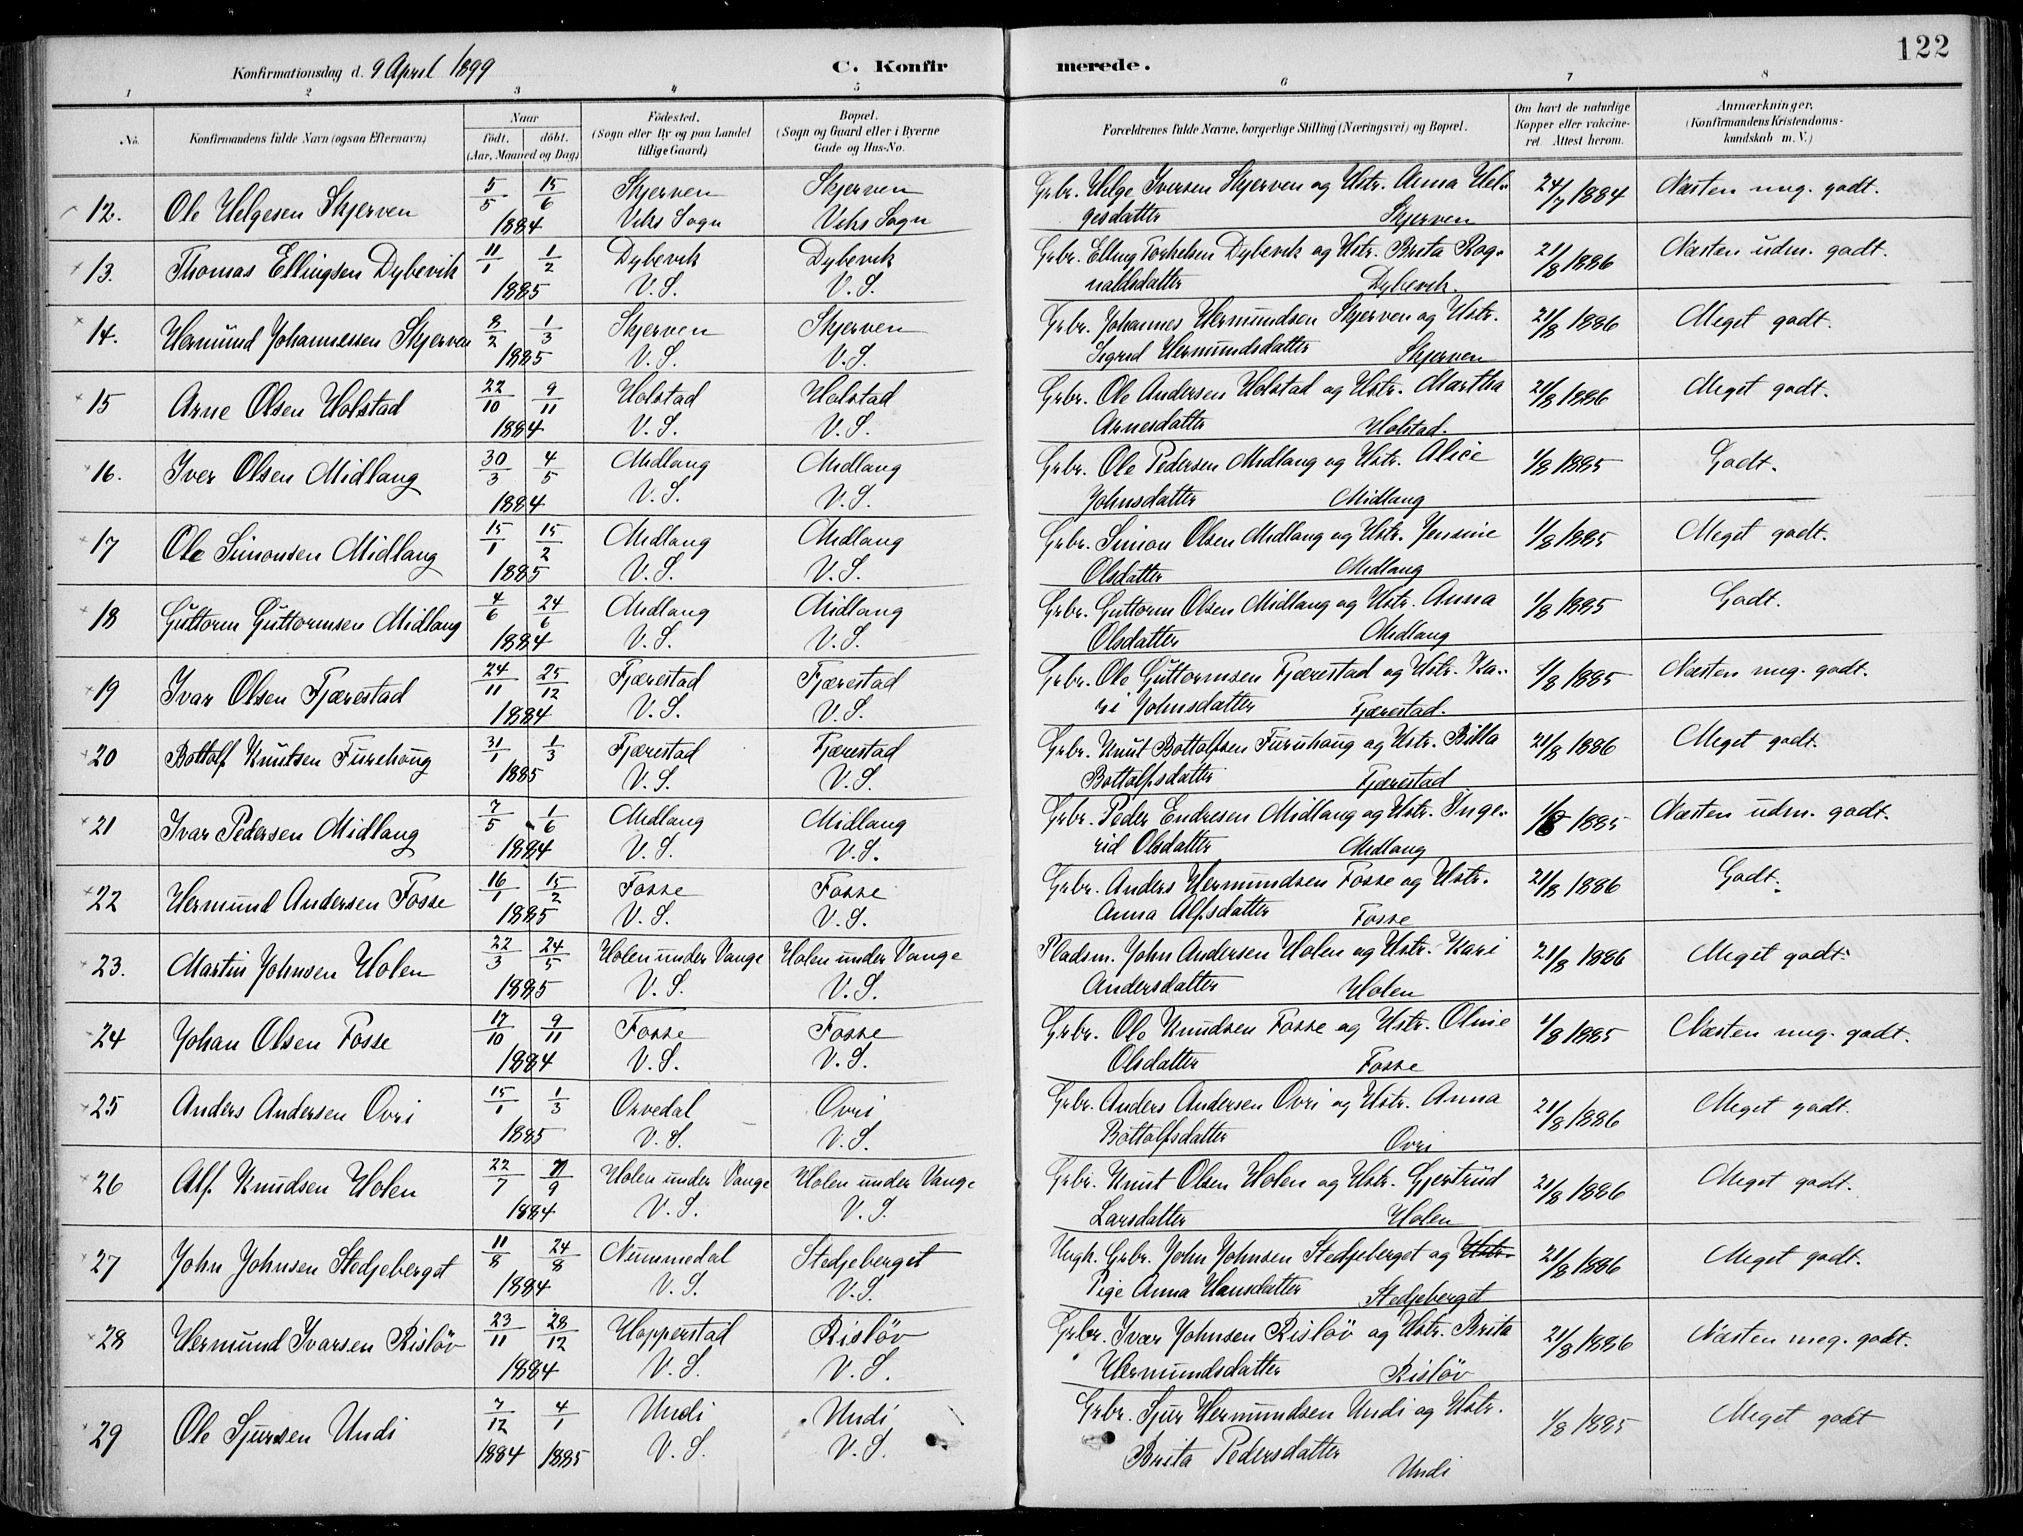 122
Konfirmationsdag d. 9 April 1899 C. Konfirmerede.
1 2 3 4 5 6 7 8
No. Konfirmandens fulde Navn (ogsaa Efternavn) Naar født. døbt. (Aar, Maaned og Dag) Fødested. (Sogn eller By og paa Landet tillige Gaard) Bopæl. (Sogn og Gaard eller i Byerne Gade og Hus-No. Forældrenes fulde Navne, borgerlige Stilling (Næringsvei) og Bopæl. Om havt de naturlige Kopper eller vakcineret. Attest herom. Anmærkninger. (Konfirmandens Kristendomskundskab m. V.)
12. Ole Helgesen Skjerven 5/5 15/6 Skjerven Skjerven Grbr. Helge Iversen Skjerven og Hstr. Anna Hel- 24/7 1884 Næsten mug. godt.
1884 Viks Sogn Viks Sogn gesdatter Skjerven
13. Thomas Ellingsen Dybevik 11/1 1/2 Dybevik Dybevik Grbr. Elling Torkelsen Dybevik og Hstr. Brita Rog- 21/8 1886 Næsten udm. godt.
1885 V. S. V. S. naldsdatter Dybevik.
14. Hermund Johannessen Skjerven 8/2 1/3 Skjerven Skjerven Grbr. Johannes Hermundsen Skjerven og Hstr. 21/8 1886 Meget godt.
1885 V. S. V. S. Sigrid Hermundsdatter Skjerven
15 Arne Olsen Holstad 22/10 9/11 Holstad Holstad Grbr. Ole Andersen Holstad og Hstr. Martha 21/8 1886 Meget godt.
1884 V. S. V. S. Arnesdatter Holstad.
16. Iver Olsen Midlang 30/3 4/5 Midlang Midlang Grbr. Ole Pedersen Midlang og Hstr. Alice 1/8 1885 Godt.
1884 V. S. V. S. Johnsdatter Midlang
17 Ole Simonsen Midlang 15/1 15/2 Midlang Midlang Grbr. Simon Olsen Midlang og Hstr. Jensine 1/8 1885 Meget godt.
1885 V. S. V. S. Olsdatter Midlang
18 Guttorm Guttormsen Midlang 4/6 24/6 Midlang Midlang Grbr. Guttorm Olsen Midlang og Hstr. Anna 1/8 1885 Godt.
1884 V. S. V. S. Olsdatter Midlang
19 Ivar Olsen Fjærestad 24/11 25/12 Fjærestad Fjærestad Grbr. Ole Guttormsen Fjærestad og Hstr. Ka- 1/8 1885 Næsten mug. godt.
1884 V. S. V. S. ri Johnsdatter Fjærestad.
20 Bottolf Knutsen Furehoug 31/1 1/3 Fjærestad Fjærestad Grbr. Knut Bottolfsen Furuhaug og Hstr. Billa 21/8 1886 Meget godt.
1885 V. S. V. S. Bottolfsdatter Fjærestad
21 Ivar Pedersen Midlang 7/5 1/6 Midlang Midlang Grbr. Peder Endresen Midlang og Hstr. Inge- 1/8 1885 Næsten udm. godt.
1884 V. S. V. S. rid Olsdatter Midlang
22 Hermund Andersen Fosse 16/1 15/2 Fosse Fosse Grbr. Anders Hermundsen Fosse og Hstr. 21/8 1886 Godt.
1885 V. S. V. S. Anna Alfsdatter Fosse
23. Martin Johnsen Holen 22/3 24/5 Holen under Vange Holen under Vange Pladsm. John Andersen Holen og Hstr. Kari 21/8 1886 Meget godt.
1885 V. S. V. S. Andersdatter Holen
24 Johan Olsen Fosse 17/10 9/11 Fosse Fosse Grbr. Ole Knudsen Fosse og Hstr. Oline 1/8 1885 Næsten mug. godt.
1884 V. S. V. S. Olsdatter Fosse
25 Anders Andersen Ovri 15/1 1/3 Orvedal Ovri Grbr. Anders Andersen Ovri og Hstr. Anna 21/8 1886 Meget godt.
1885 V. S. V. S. Bottolfsdatter Ovri
26 Alf Knudsen Holen 22/7 7/9 Holen under Vange Holen under Vange Grbr. Knut Olsen Holen og Hstr. Gjertrud 21/8 1886 Meget godt.
1884 V. S. V. S. Larsdatter Holen
27 John Johnsen Stedjeberget 11/8 24/8 Nummedal Stedjeberget Ungk. Grbr. John Johnsen Stedjeberget og Hstr. 21/8 1886 Meget godt.
1884 V. S. V. S. Pige Anna Hansdatter Stedjeberget
28 Hermund Ivarsen Risløv 23/11 28/12 Hopperstad Risløv Grbr. Ivar Johnsen Risløv og Hstr. Brita 21/8 1886 Næsten meg. godt.
1884 V. S. V. S. Hermundsdatter Risløv
29 Ole Sjursen Undi 7/12 4/1 Undi Undi Grbr. Sjur Hermundsen Undi og Hstr. 1/8 1885 Meget godt
1884 1885 V. S. V. S. Brita Pedersdatter Undi